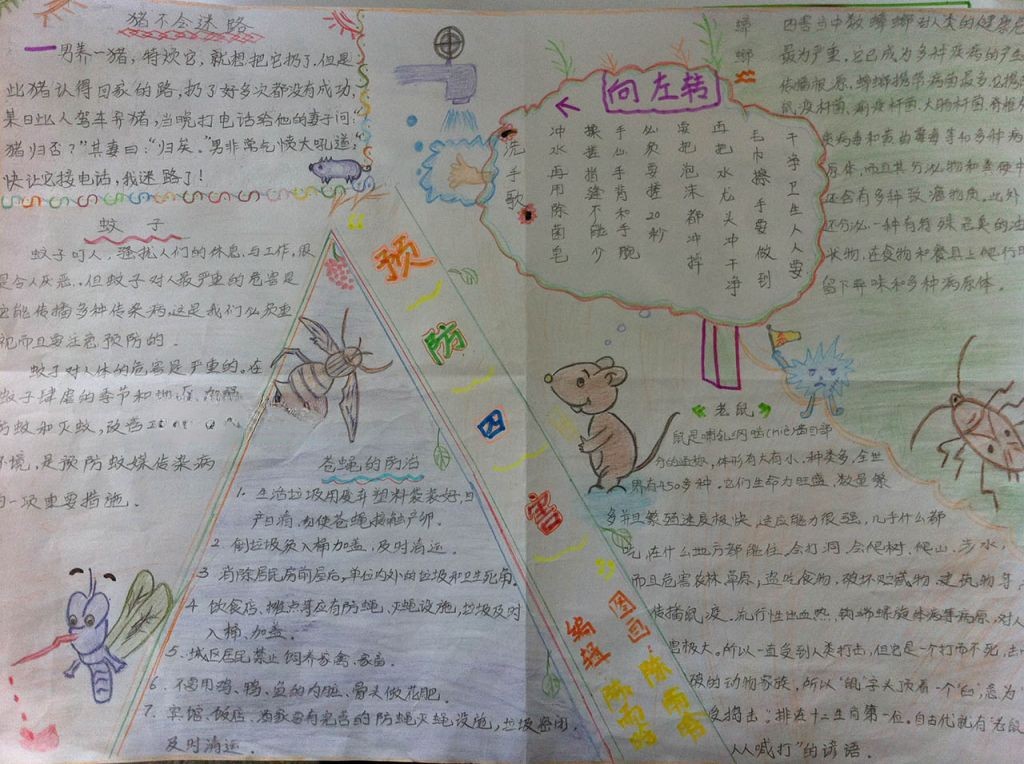 猪不会迷路
一男养一猪，特烦它，就想把它扔了，但是
此猪认得回家的路，扔了好多次都没有成功，
某日此人驾车弃猪，当晚打电话给他的妻子问：“
猪归否？”其妻曰：“归矣。”男非常气愤大吼道：“
快让它接电话，我迷路了！
蚊子
蚊子叮人，骚扰人们的休息与工作，很
是令人厌恶，但蚊子对人最严重的危害是
它能传播多种传染病，这是我们必须重
视而且要注意预防的．
蚊子对人体的危害是严重的．在
蚊子肆虐的季节和地区
防蚊和灭蚊，改善
环境，是预防蚊媒传染病
的一项重要措施．
预防四害
编辑
图画：陈雨晗
陈雨晗
苍蝇的防治
1．生活垃圾用废弃塑料袋装好，日
产日清，勿使苍蝇接触产卵．
2．倒垃圾须入桶加盖，及时清运．
3．消除居民房前屋后，单位内外的垃圾和卫生死角．
4．饮食店、摊点等应有防蝇、灭蝇设施，垃圾及时
入桶、加盖．
5．城区居民禁止饲养家禽、家畜．
6．不要用鸡、鸭、鱼的内脏、骨头做花肥．
7．宾馆、饭店、酒家要有完善的防蝇灭蝇设施，垃圾密闭，
及时清运．
向左转
干净卫生人人要
毛巾擦手要做到
再把水龙头冲干净
要把泡沫都冲掉
必须要搓20秒
手心手背和手腕
揉搓指缝不能少
冲水再用除菌皂
洗手歌
蟑螂
四害当中数蟑螂对人类的健康危
最为严重，它已成为多种疾病的产生
传播根源．蟑螂携带病菌最多包括
鼠疫杆菌、痢疾杆菌、大肠杆菌
类病毒和黄曲霉毒等40多种病
原体，而且其分泌物和粪便中
还含有多种致癌物质．此外
还分泌一种有特殊恶臭的油
状物，在食物和餐具上爬行
留下异味和多种病原体．
老鼠
鼠是哺乳纲啮(niè)齿目部
分的动物，体形有大有小，种类多，全世
界有450多种，它们生命力旺盛，数量繁
多并且繁殖速度极快，适应能力很强，几乎什么都
吃，在什么地方都能住，会打洞、会爬树、爬山、涉水，
而且危害农林、草原；盗吃食物，破坏贮藏物、建筑物等，
传播鼠疫、流行性出血热、钩端螺旋体病等病原，对人
害极大。所以一直受到人类打击，但它是个打而不死，击
破的动物家族，所以“鼠”字头顶着一个“臼”，意为
受捣击；排在十二生肖第一位．自古代就有“老鼠
人人喊打”的谚语．